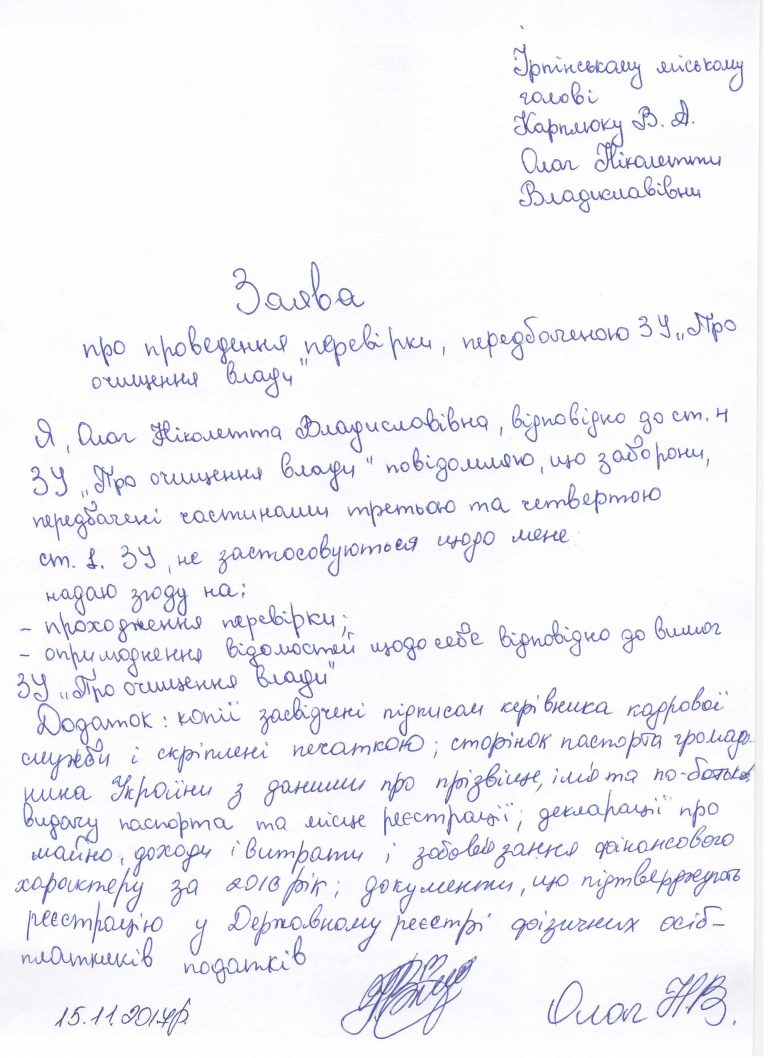 Ірпінському міському
голові
Карплюку В. А.
Олаг Ніколетти
Владиславівни
Заява
про проведення перевірки, передбаченою ЗУ „Про
очищення влади"
Я, Олаг Ніколетта Владиславівна, відповідно до ст. 4
ЗУ „Про очищення влади" повідомляю, що заборони,
передбачені частинами третьою та четвертою
ст. 1. ЗУ, не застосовуються щодо мене
надаю згоду на:
- проходження перевірки;
- оприлюднення відомостей щодо себе відповідно до вимог
ЗУ „Про очищення влади"
Додаток: копії засвідчені підписом керівника кадрової
служби і скріплені печаткою; сторінок паспорта громадя-
нина України з даними про прізвище, ім'я та по-батькові,
видачу паспорта та місце реєстрації; декларації про
майно, доходи і витрати і зобов'язання фінансового
характеру за 2016 рік; документи, що підтверджують
реєстрацію у Державному реєстрі фізичних осіб-
платників податків
15.11.2017р. Олаг Н.В.